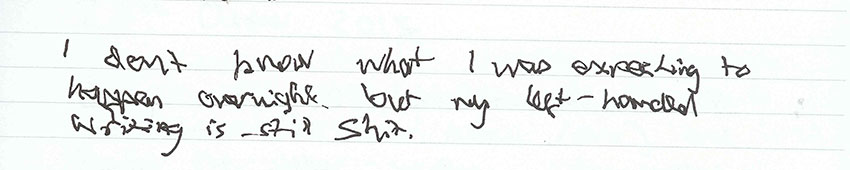 I don't know what I was expecting to
happen overnight. but my left-handed
writing is still shit.